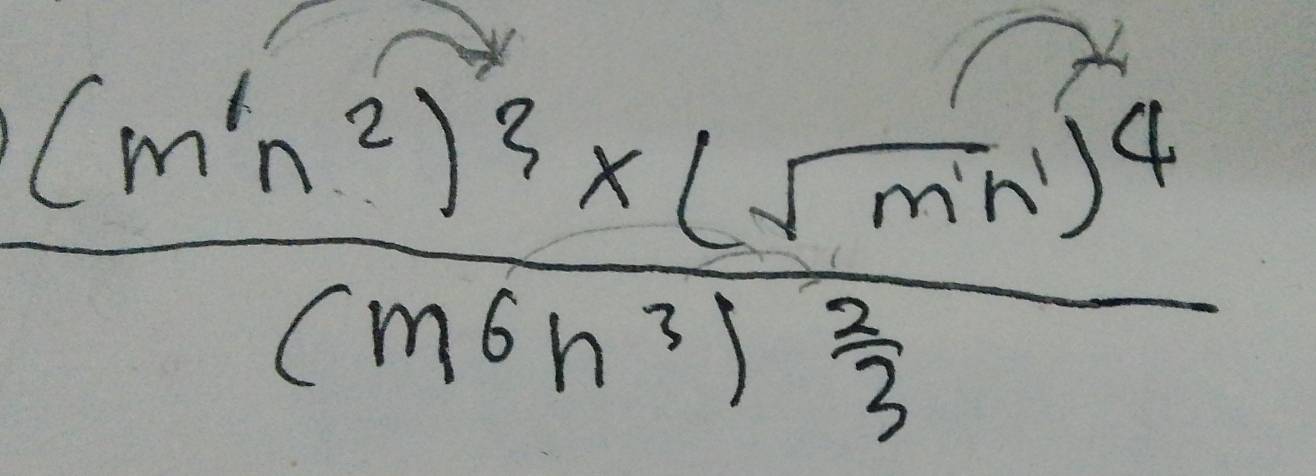 (m¹n²)³ × (√m¹n¹)⁴
(m⁶n³)⅔